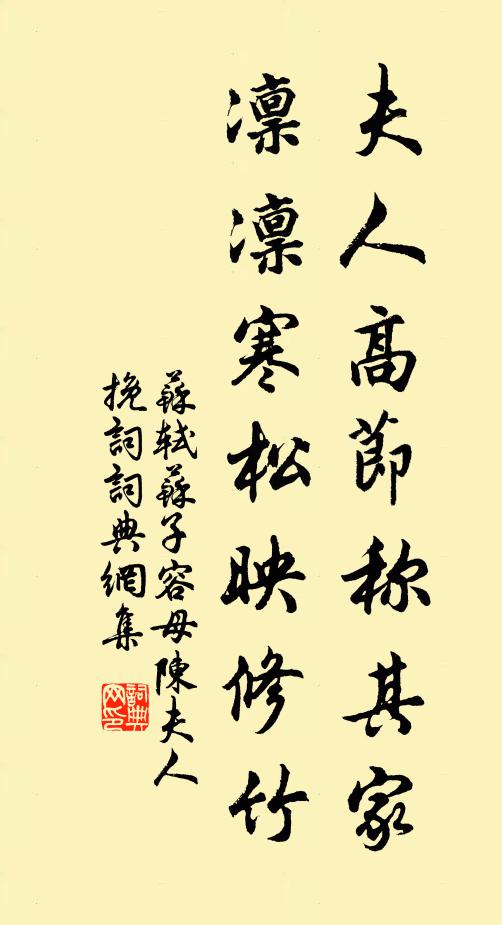 夫人高節称其家
凛凛寒松映修竹
蘇軾蘇子容母陳夫人
挽詞詞典網集
詞典网印